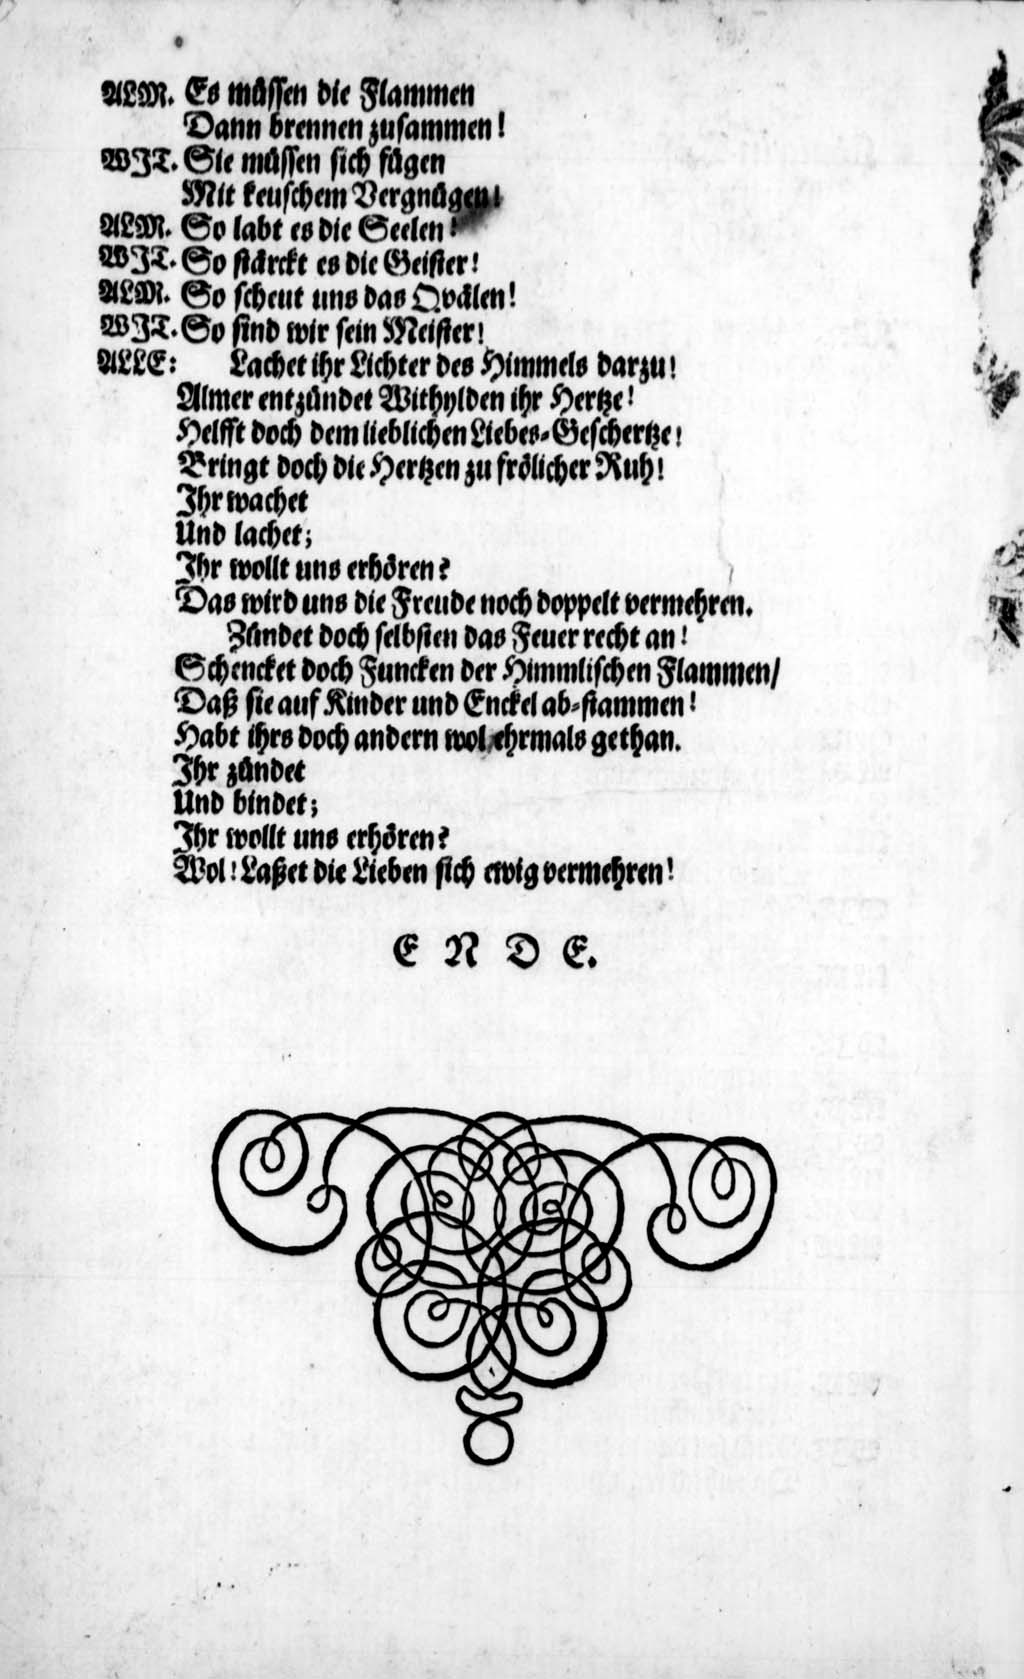 ALM. Es müssen die Flammen
Dann brennen zusammen!
WJT. Sie müssen sich fügen
Mit keuschem Vergnügen!
ALM. So labt es die Seelen!
WJT. So stärckt es die Geister!
ALM. So scheut uns das Qvälen!
WJT. So sind wir sein Meister!
ALLE: Lachet ihr Lichter des Himmels darzu!
Almer entzündet Withylden ihr Hertze!
Helfft doch dem lieblichen Liebes-Geschertze!
Bringt doch die Hertzen zu frölicher Ruh!
Jhr wachet
Und lachet;
Jhr wollt uns erhören?
Das wird uns die Freude noch doppelt vermehren.
Zündet doch selbsten das Feuer recht an!
Schencket doch Funcken der Himmlischen Flammen/
Daß sie auf Kinder und Enckel ab-stammen!
Habt ihrs doch andern wol ehrmals gethan.
Jhr zündet
Und bindet;
Jhr wollt uns erhören?
Wol! Laßet die Lieben sich ewig vermehren!
E N D E.